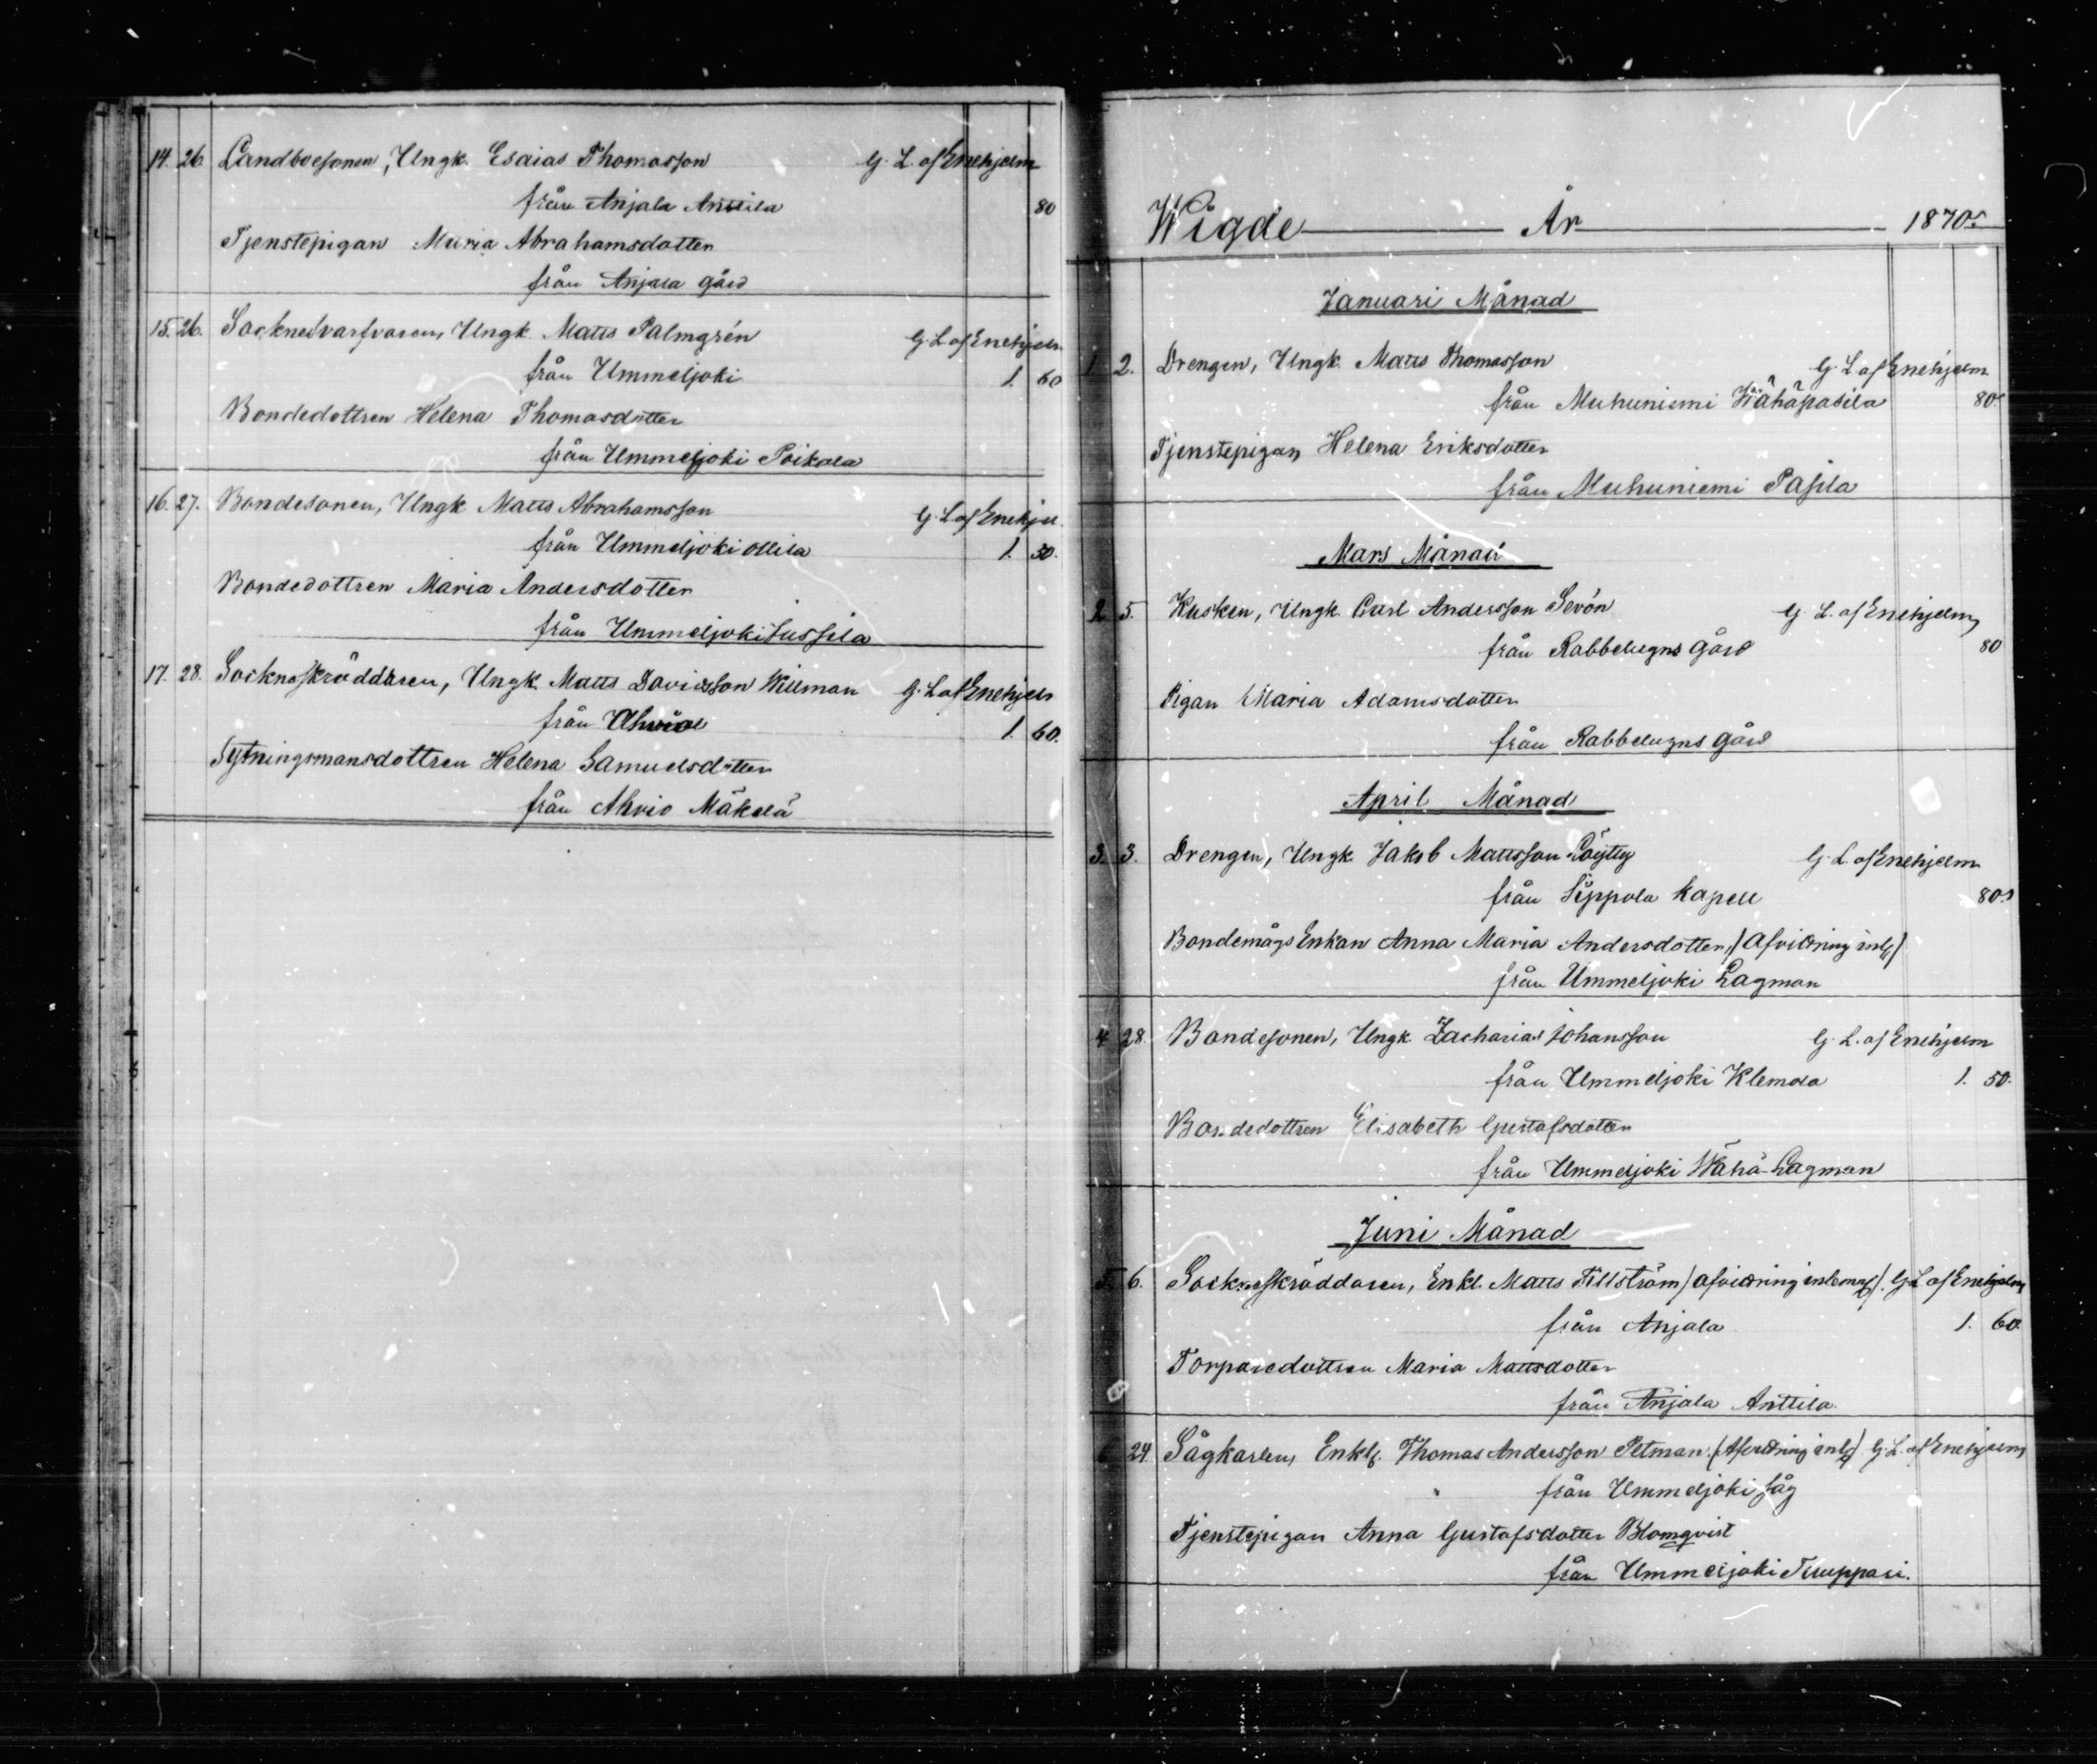 14. 26. Landboesonen, Ungk. Esaias Thomasson G. L. af Enehjelm
från Anjala Anttila 80
Tjenstepigan Maria Abrahamsdotter
från Anjala gård
15. 26. Sockne Ungk. Matts Palmgrén G. L. af Enehjelm
från Ummeljoki 1. 60
Bondedottren Helena Thomasdotter
från Ummeljoki Poikala
16. 27. Bondesonen, Ungk Matts Abrahamsson G. L. af Enehje
från Ummeljoki Ollila 1. 50.
Bondedottren Maria Andersdotter
från Ummeljoki Jussila
17. 28. Sockneskräddaren, Ungk. Matts Davidsson Willman G. L. af Enehjelm
från Ahvio 1. 60.
Sytningsmansdottren Helena Samuelsdotter
från Ahvio Mäkelä
Wigde År 1870
Januari Månad
1. 2. Drengen, Ungk. Matts Thomasson G. L. af Enehjelm
från Muhuniemi Wähäpasila 80
Tjenstepigan Helena Eriksdotter
från Muhuniemi Pasila
Mars Månad
2. 5. Kusken, Ungk. Carl Andersson Sevón G. L. af Enehjelm
från Rabbelugns gård 80
Pigan Maria Adamsdotter
från Rabbelugns gård
April Månad
3. 3. Drengen, Ungk. Jakob Mattsson Löytty G. L. af Enehjelm
från Sippola Kapell 80
Bondemågs Enkan Anna Maria Andersdotter, (Afvittring inl)
från Ummeljoki Lagman
4. 28. Bondesonen, Ungk. Zacharias Johansson G. L. af Enehjelm
från Ummeljoki Klemola 1. 50.
Bondedottren Elisabeth Gustafsdotter
från Ummeljoki Wähä-Lagman
Juni Månad
5. 6. Sockneskräddaren, Enkl. Matts Fillström (afvittring inlemn). G. L. af Enehjelm
från Anjala 1. 60
Torparedottren Maria Mattsdotter
från Anjala Anttila
6 24 Sågkarlen, Enkl. Thomas Andersson Petman. (Afvittring inl) G. L. af Enehjelm
från Ummeljoki såg
Tjenstepigan Anna Gustafsdotter Blomqvist
från Ummeljoki Tuuppari.